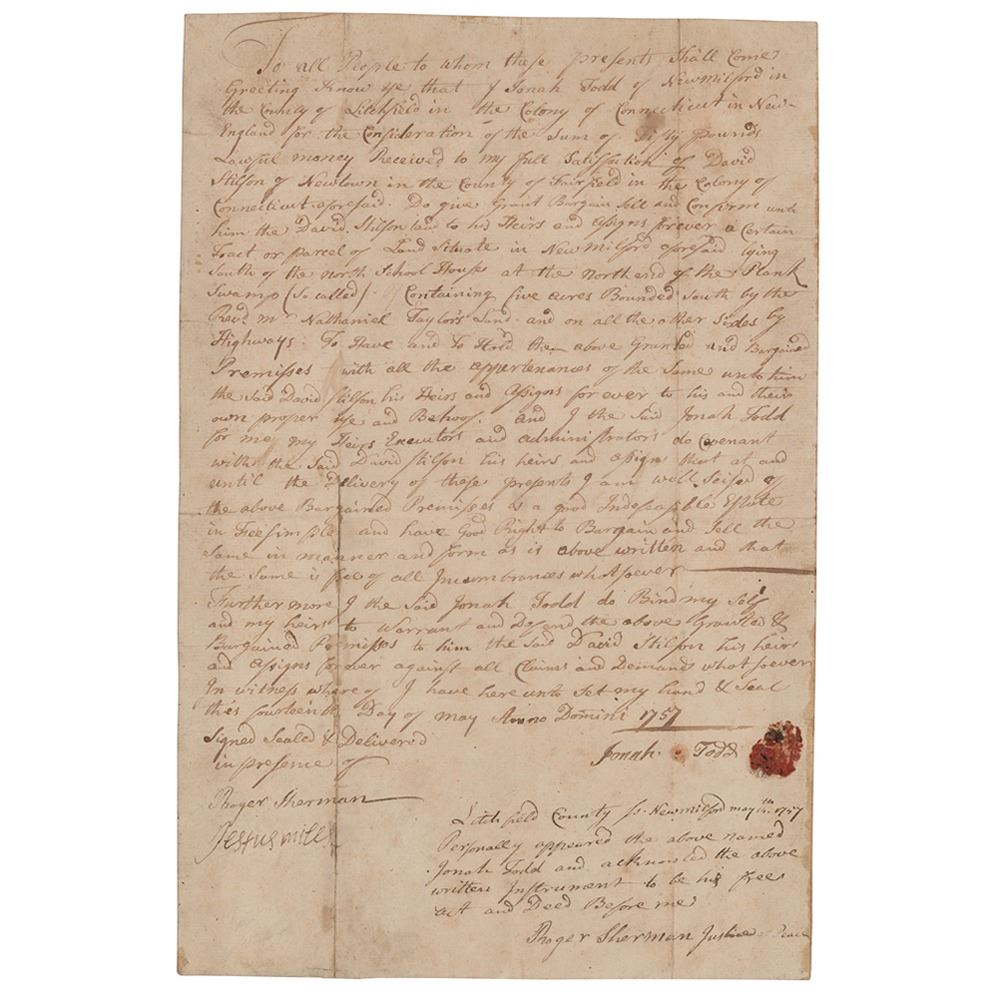 To all People to whom these presents Shall Come
Greeting Know ye that I Jonah Todd of Newmilford in
the County of Litchfield in the Colony of Connecticut in New-
England for the Consideration of the Sum of fifty Pounds
Lawful money Received to my full Satisfaction of David
Stilson of Newtown in the County of Fairfield in the Colony of
Connecticut aforesaid. Do give Grant Bargain Sell and Confirm unto
him the David Stilson and to his Heirs and Assigns forever a Certain
Tract or Parcel of Land Situate in Newmilford aforesaid lying
South of the north School House at the north end of the Plank
Swamp (So called) Containing five acres Bounded South by the
Revd. mr Nathaniel Taylor's Land and on all the other Sides by
Highways. To Have and to Hold the above Granted and Bargained
Premisses with all the appertenances of the Same unto him
the said David Stilson his Heirs and Assigns for ever to his and their
own proper use and Behoof. And I the Said Jonah Todd
for me my Heirs Executors and administrators do Covenant
with the Said David Stilson his heirs and assigns that at and
until the Delivery of these presents I am well Seised of
the above Bargained Premisses as a good Indefeasible Estate
in Feesimple and have Good Right to Bargain and Sell the
Same in manner and form as is above written and that
the Same is free of all Incumbrances whatsoever
Furthermore I the Said Jonah Todd do Bind my Self
and my heirs to Warrant and Defend the above Granted &
Bargained Premisses to him the said David Stilson his heirs
and Assigns forever against all Claims and Demands whatsoever
In witness whereof I have hereunto Set my hand & Seal
this fourteenth Day of may Anno Domini 1757
Signed Sealed & Delivered
in presence of
Jonah Todd
Roger Sherman
Justus miles
Litchfield County ss. Newmilford may 14th. 1757
Personally appeared the above named
Jonah Todd and acknowled the above
written Instrument to be his free
act and Deed Before me
Roger Sherman Justice of Peace